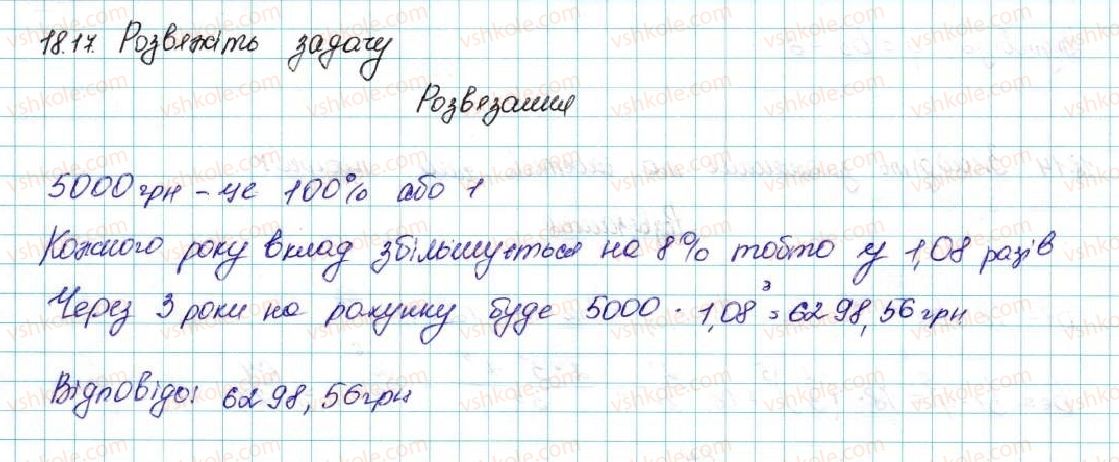 18.17. Розвяжіть задачу
Розвязання
5000 грн - це 100% або 1
Кожного року вклад збільшується на 8% тобто у 1,08 разів
Через 3 роки на рахунку буде 5000 · 1,08³ = 6298,56 грн
Відповідь: 6298,56 грн